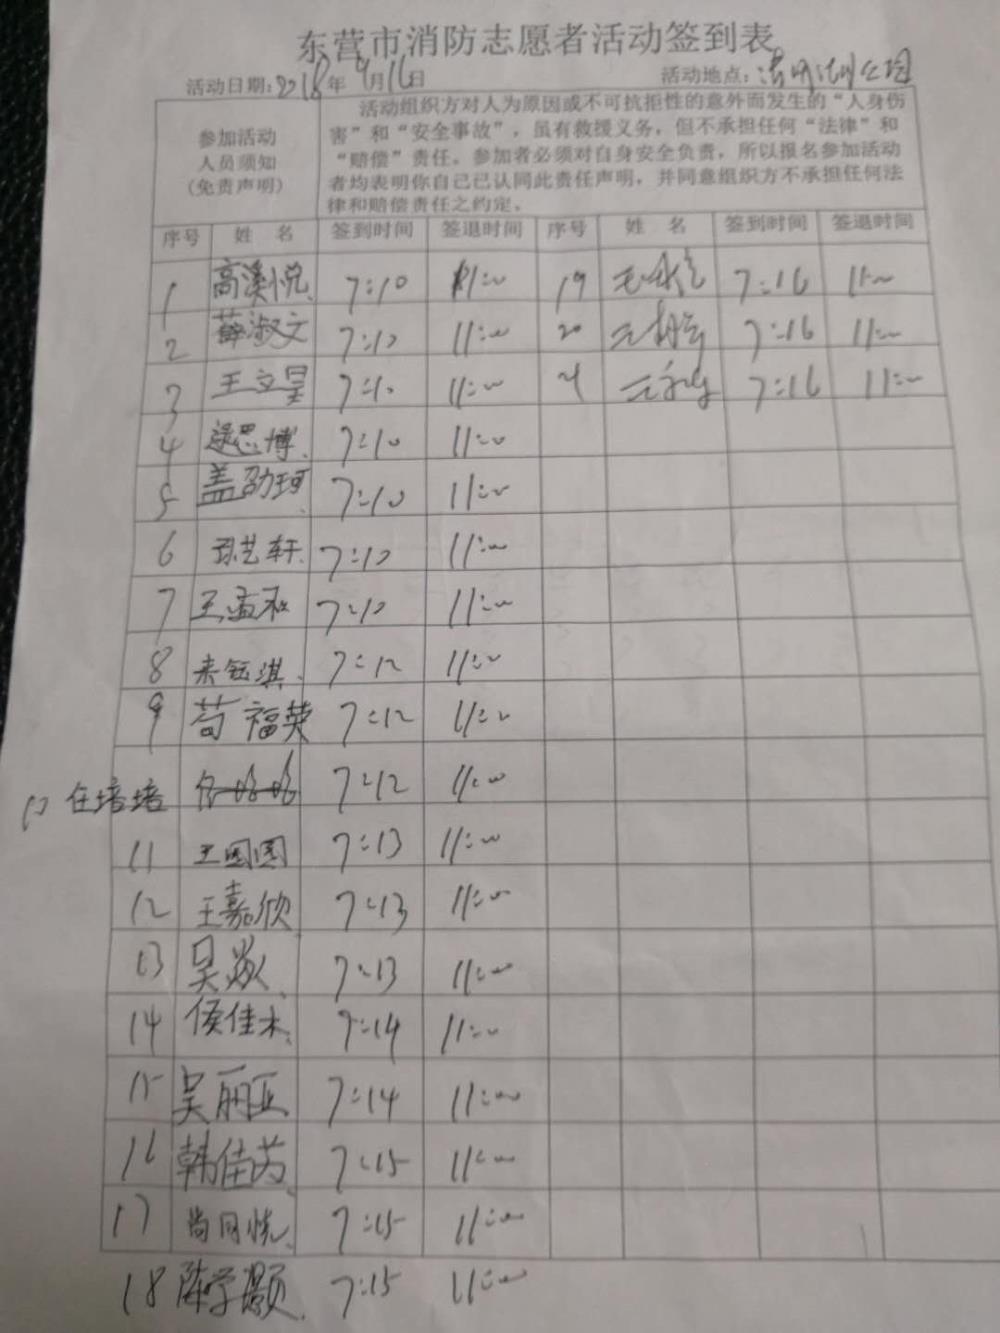 东营市消防志愿者活动签到表
活动日期:2018年9月16日 活动地点:
参加活动
人员须知
(免责声明)
活动组织方对人为原因或不可抗拒性的意外而发生的“人身伤
害”和“安全事故”，虽有救援义务，但不承担任何“法律”和
“赔偿”责任。参加者必须对自身安全负责，所以报名参加活动
者均表明你自己已认同此责任声明，并同意组织方不承担任何法
律和赔偿责任之约定。
序号 姓 名 签到时间 签退时间 序号 姓 名 签到时间 签退时间
1 高溪悦 7:10 11:00 19 7:16 11:00
2 薛淑文 7:10 11:00 20 7:16 11:00
3 王立昊 7:10 11:00 21 7:16 11:00
4 逯思博 7:10 11:00
5 盖劭珂 7:10 11:00
6 孙艺轩 7:10 11:00
7 王孟和 7:10 11:00
8 来钰淇 7:12 11:00
9 苟福英 7:12 11:00
10 任培培 7:12 11:00
11 王园园 7:13 11:00
12 王嘉欣 7:13 11:00
13 吴焱 7:13 11:00
14 侯佳木 7:14 11:00
15 吴丽亚 7:14 11:00
16 韩佳芮 7:15 11:00
17 尚同悦 7:15 11:00
18 陈学灏 7:15 11:00